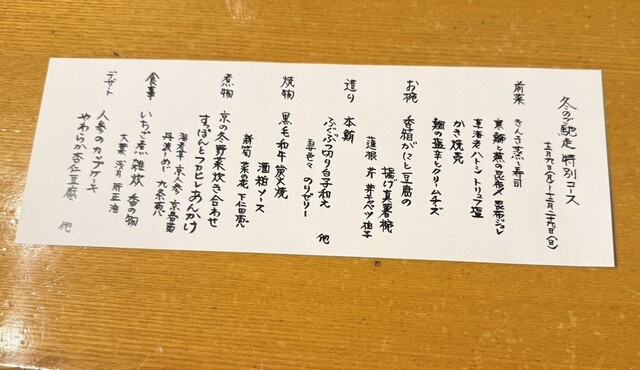 冬のご馳走 特別コース
前菜
きんき煮こごり寿司
車海老ハトシ トリュフ塩
かき焼売
鯛の塩辛とクリームチーズ
お椀
香箱がにと豆腐の
揚げ真薯椀
蓮根 芹 芽キャベツ 柚子
造り
本鮪
ふぐぶつ切り白子和え
のりゼリー
他
焼物
黒毛和牛炭火焼
酒粕ソース
新筍 菜の花 下仁田葱
煮物
京の冬野菜炊き合わせ
すっぽんとフカヒレあんかけ
海老芋 京人参 京春菊
丹波しめじ 九条葱
食事
いちご煮雑炊 香の物
大葉 浅月 肝正油
デザート
人参のカップケーキ
やわらか杏仁豆腐 他